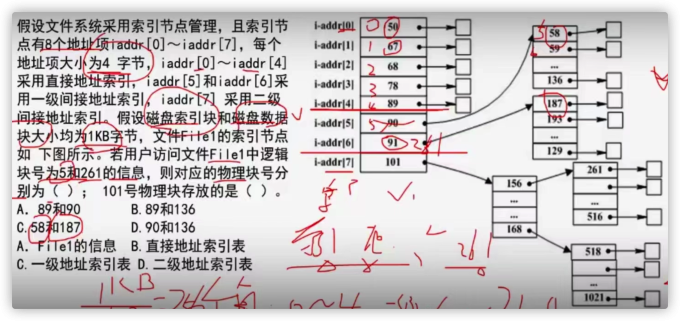 假设文件系统采用索引节点管理，且索引节
点有8个地址项iaddr[0]～iaddr[7]，每个
地址项大小为4 字节，iaddr[0]～iaddr[4]
采用直接地址索引，iaddr[5]和iaddr[6]采
用一级间接地址索引，iaddr[7] 采用二级
间接地址索引。假设磁盘索引块和磁盘数据
块大小均为1KB字节，文件File1的索引节点
如 下图所示。若用户访问文件File1中逻辑
块号为5和261的信息，则对应的物理块号分
别为（ ）；101号物理块存放的是（ ）。
A. 89和90 B. 89和136
C. 58和187 D. 90和136
A. File1的信息 B. 直接地址索引表
C. 一级地址索引表 D. 二级地址索引表
i-addr[0] 0 50
i-addr[1] 1 67
i-addr[2] 2 68
i-addr[3] 3 78
i-addr[4] 4 89
i-addr[5] 5 90
i-addr[6] 91 261
i-addr[7] 101
5 58
59
...
136
187
193
...
129
156
...
...
168
261
...
...
516
518
...
...
1021
261
1KB